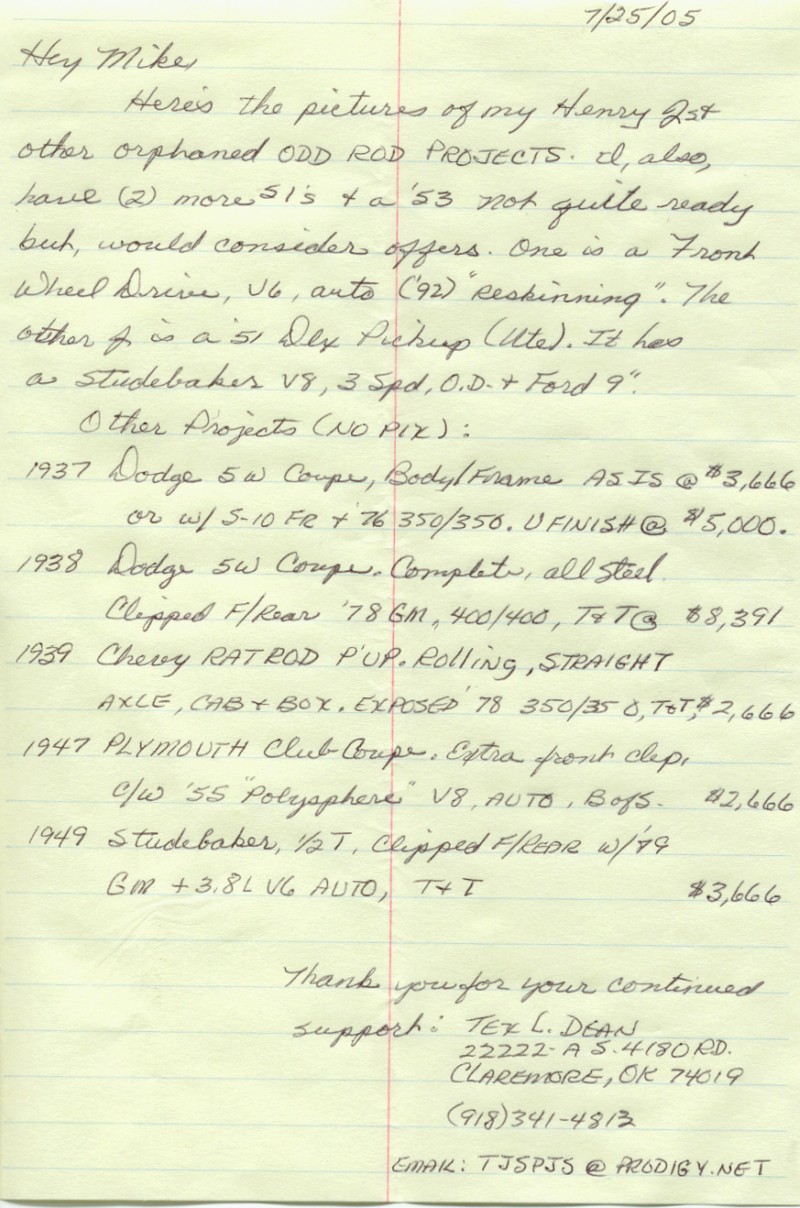 7/25/05
Hey Mike,
Here's the pictures of my Henry J's +
other orphaned ODD ROD PROJECTS. I, also,
have (2) more 51's + a '53 not quite ready
but, would consider offers. One is a Front
Wheel Drive, V6, auto ('92) "Reskinning". The
other is a '51 Dlx Pickup (Ute). It has
a Studebaker V8, 3 Spd, O.D. + Ford 9".
Other Projects (NO PIX):
1937 Dodge 5W Coupe, Body/Frame AS IS @ $3,666
or w/ S-10 FR + '76 350/350. U FINISH @ $5,000.
1938 Dodge 5W Coupe. Complete, all steel.
Clipped F/Rear '78 GM, 400/400, T&T @ $8,391
1939 Chevy RATROD P'UP. Rolling, STRAIGHT
AXLE, CAB + BOX. EXPOSED '78 350/350, T&T, $2,666
1947 PLYMOUTH Club Coupe. Extra front clip,
C/W '55 "Polysphere" V8, AUTO, BofS. $2,666
1949 Studebaker, 1/2 T, Clipped F/REAR w/'79
GM + 3.8L V6 AUTO, T+T $3,666
Thank you for your continued
support: TEX L. DEAN
22222-A S. 4180 RD.
CLAREMORE, OK 74019
(918)341-4813
EMAIL: TJSPJS @ PRODIGY.NET